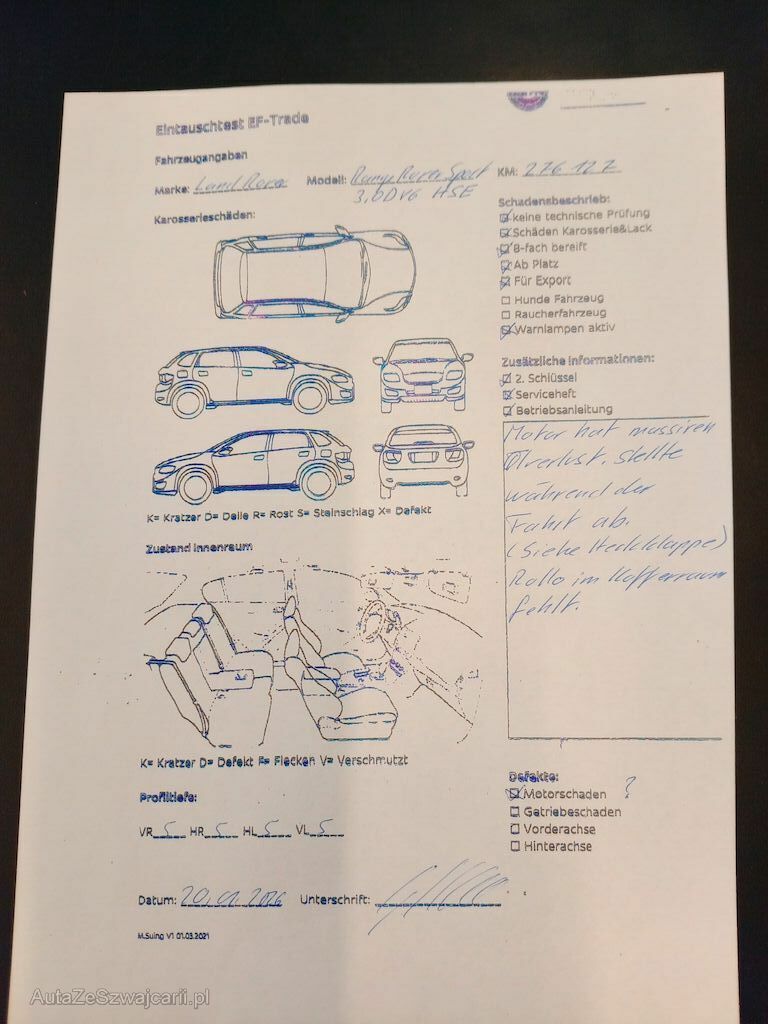 Eintauschtest EF-Trade
Fahrzeugangaben
Marke: Land Rover Modell: Range Rover Sport KM: 276 127
3,0DV6 HSE
Karosserieschäden:
Schadensbeschrieb:
keine technische Prüfung
Schäden Karosserie&Lack
8-fach bereift
Ab Platz
Für Export
Hunde Fahrzeug
Raucherfahrzeug
Warnlampen aktiv
Zusätzliche Informationen:
2. Schlüssel
Serviceheft
Betriebsanleitung
Motor hat massiren
Ölverlust. Stellte
während der
Fahrt ab.
(Siehe Heckklappe)
Rollo im Kofferraum
fehlt.
K= Kratzer D= Delle R= Rost S= Steinschlag X= Defekt
Zustand Innenraum
K= Kratzer D= Defekt F= Flecken V= Verschmutzt
Profiltiefe:
VR 5 HR 5 HL 5 VL 5
Defekte:
Motorschaden ?
Getriebeschaden
Vorderachse
Hinterachse
Datum: 20.01.2026 Unterschrift:
M.Suing V1 01.03.2021
AutaZeSzwajcarii.pl